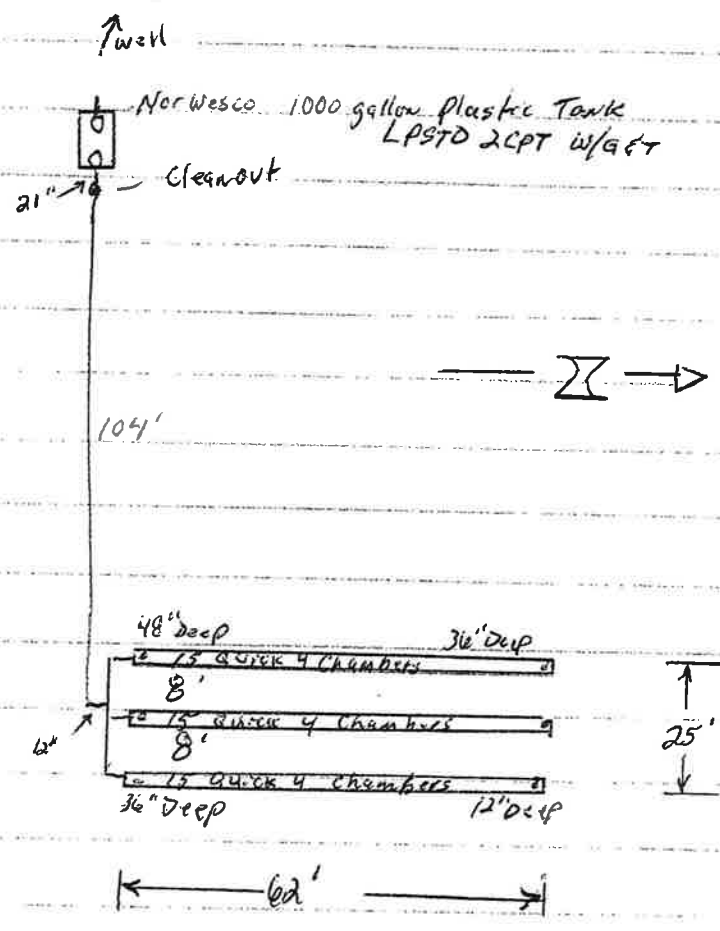 well
Norwesco 1000 gallon Plastic Tank
LPSTD 2CPT W/G&T
21" Cleanout
104'
48" Deep 36" Deep
15 Quick 4 Chambers
8'
15 Quick 4 Chambers
8'
12"
25'
15 Quick 4 Chambers
36" Deep 12" Deep
62'